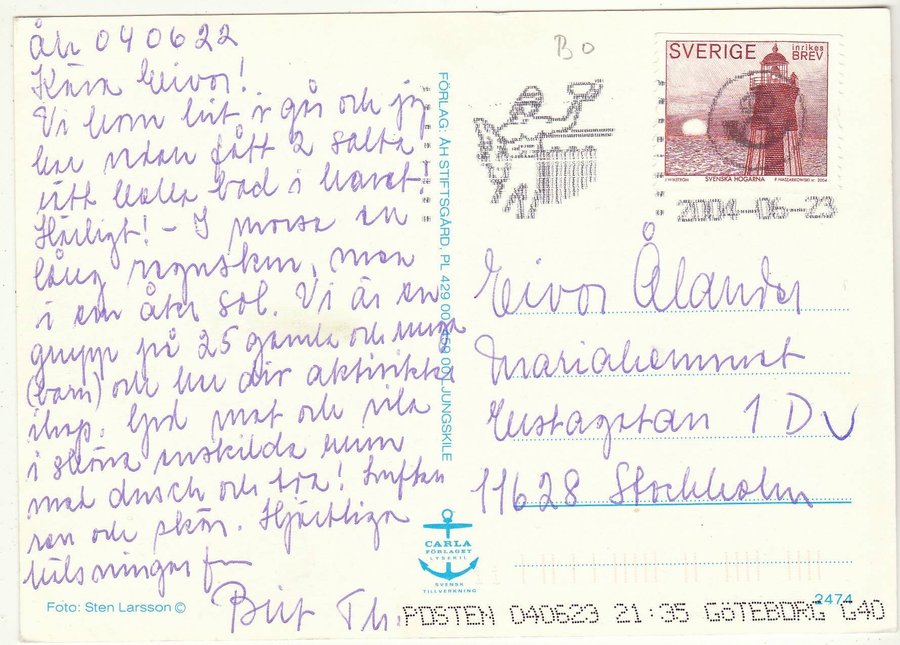 Åh 040622
Kära Eivor!
Vi kom hit i går och jag
har redan fått 2 salta
bad i havet!
Härligt! - I morse en
lång regnskur, men
i em åter sol. Vi är en
grupp på 25 gamla och unga
(barn) och har div aktiviteter
ihop. God mat och vila
i sköna enskilda rum
med dusch och toa! Luften
ren och skön. Hjärtliga
hälsningar fr
Brit Th.
Foto: Sten Larsson ©
FÖRLAG: ÅH STIFTSGÅRD, PL 429 00, 450 00 LJUNGSKILE
CARLA
FÖRLAGET
LYSEKIL
SVENSK
TILLVERKNING
B0
SVERIGE
inrikes
BREV
SVENSKA HÖGARNA
2004
2004-06-23
Eivor Ålander
Mariahemmet
1 D
11628 Stockholm
2474
POSTEN 040623 21:35 GÖTEBORG G40